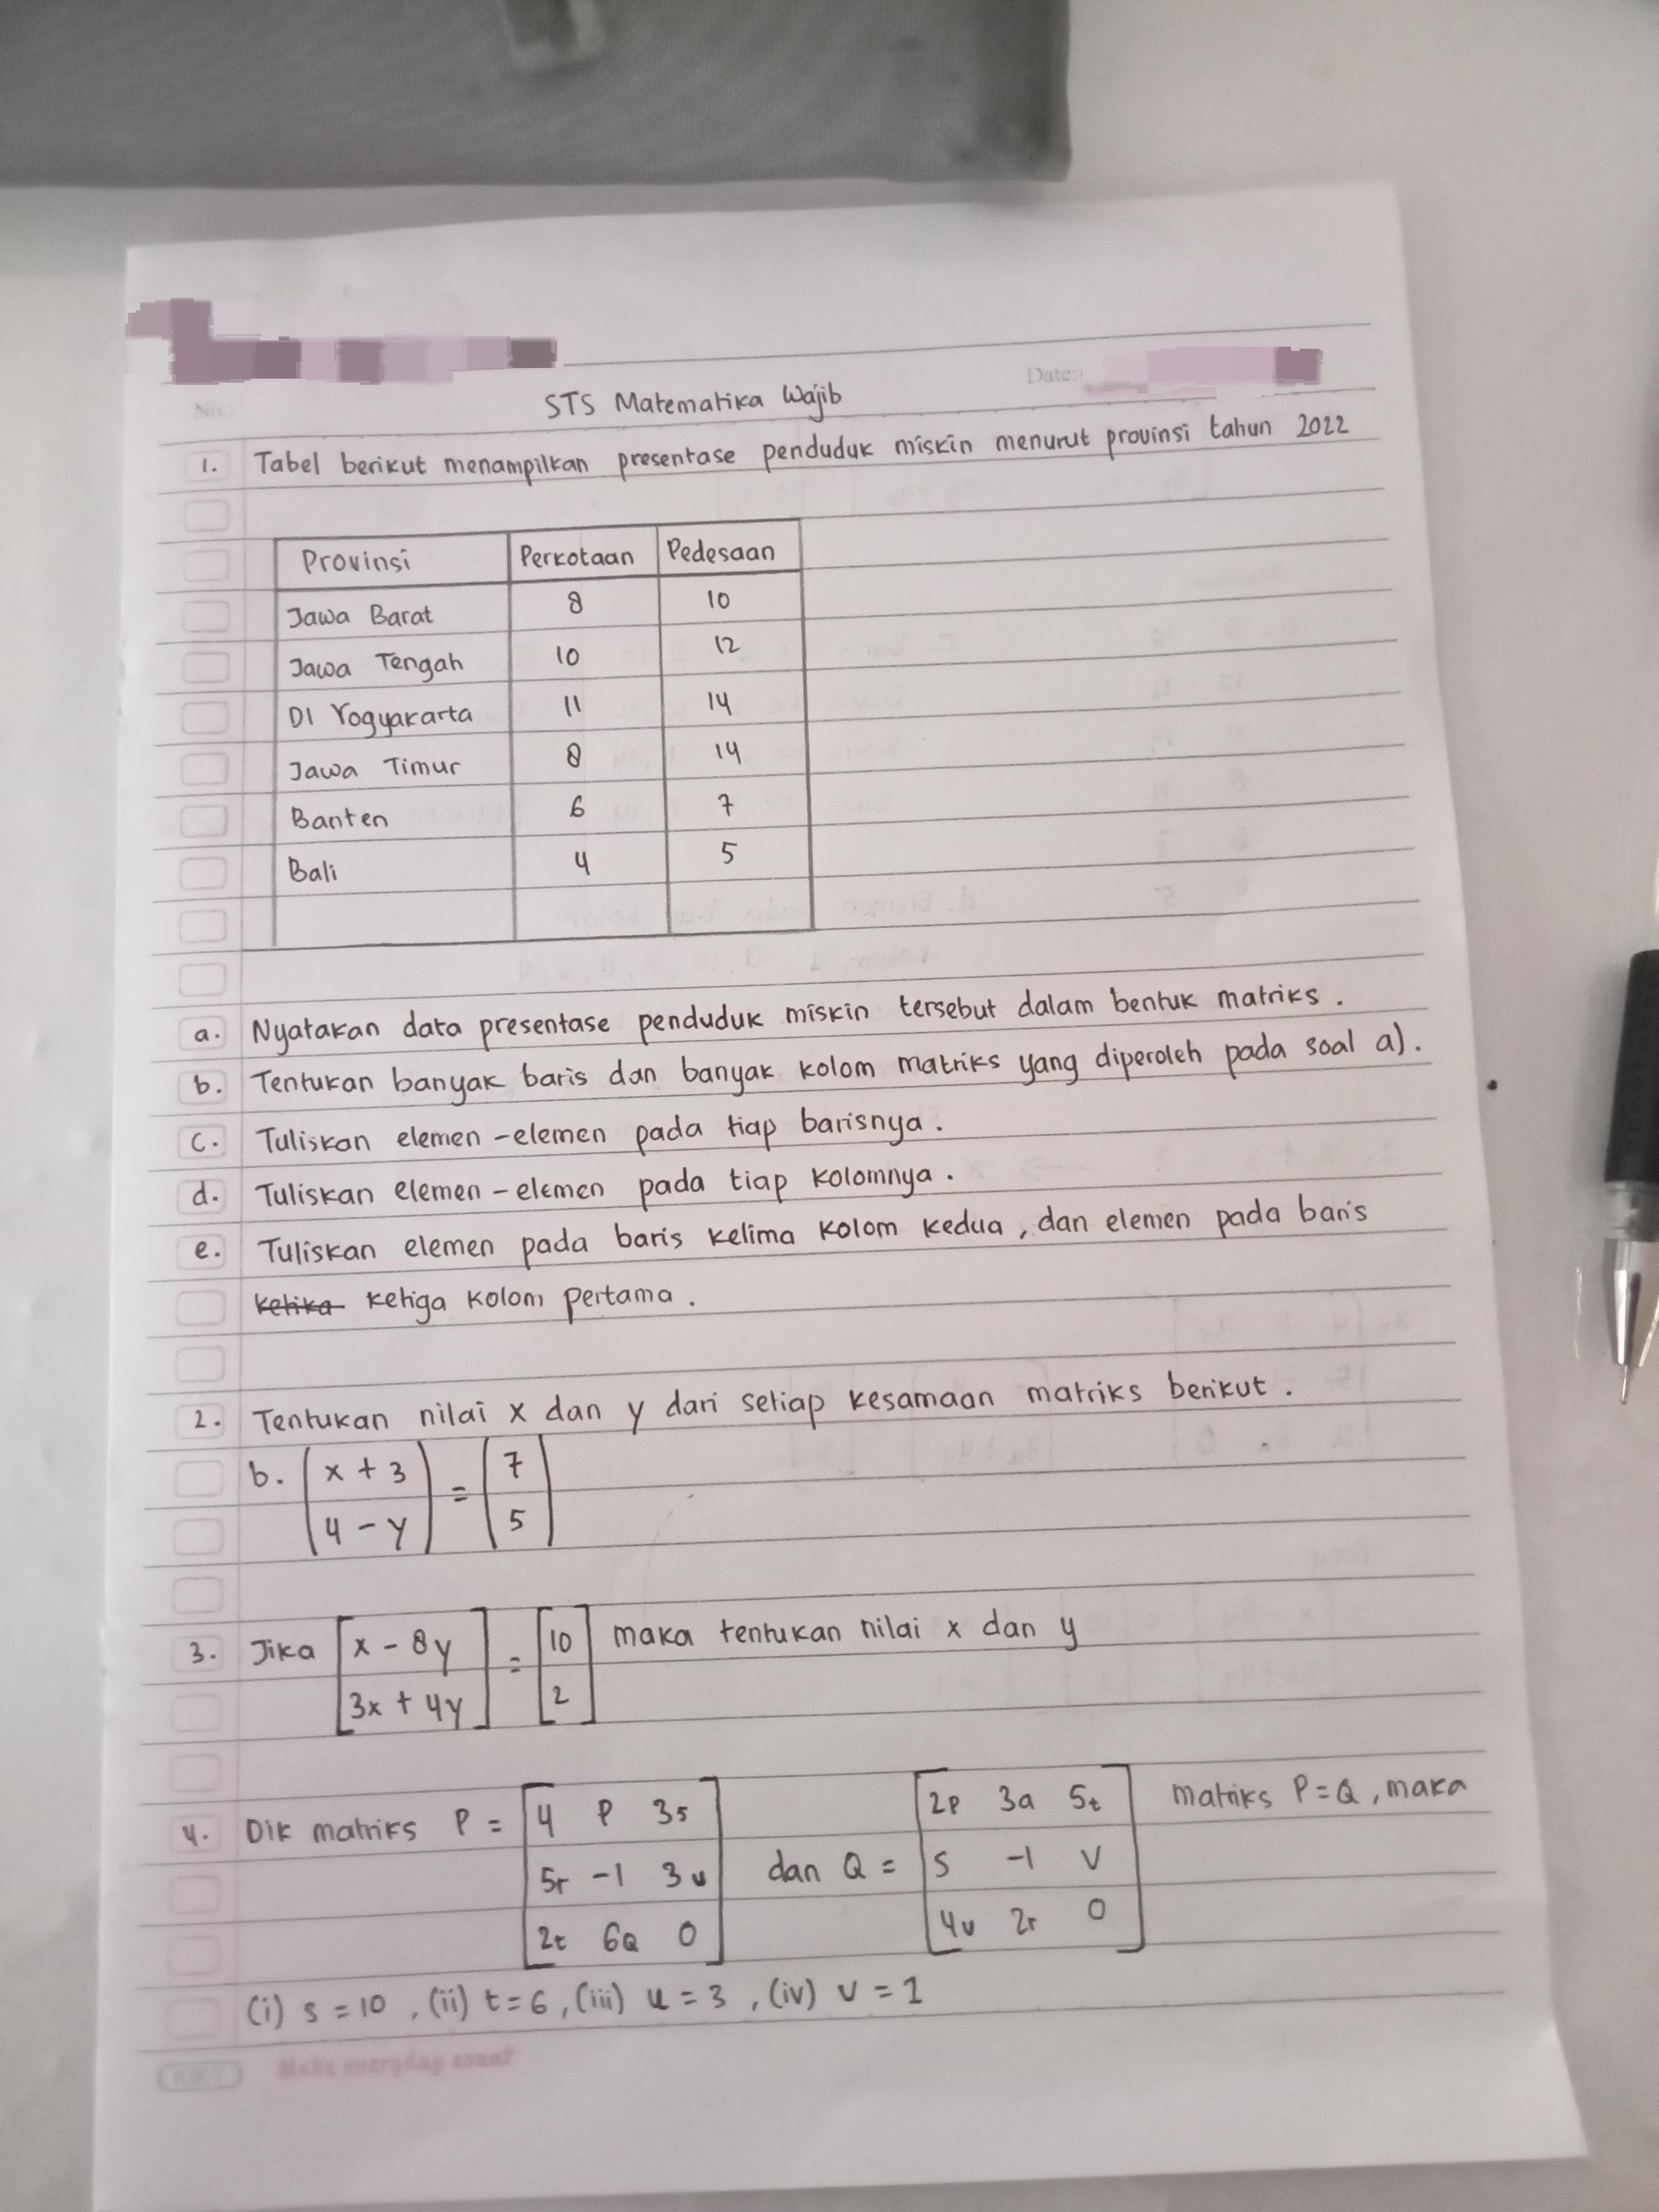 No.:
Date:
STS Matematika Wajib
1. Tabel berikut menampilkan presentase penduduk miskin menurut provinsi tahun 2022
Provinsi Perkotaan Pedesaan
Jawa Barat 8 10
Jawa Tengah 10 12
DI Yogyakarta 11 14
Jawa Timur 8 14
Banten 6 7
Bali 4 5
a. Nyatakan data presentase penduduk miskin tersebut dalam bentuk matriks.
b. Tentukan banyak baris dan banyak kolom matriks yang diperoleh pada soal a).
c. Tuliskan elemen-elemen pada tiap barisnya.
d. Tuliskan elemen-elemen pada tiap kolomnya.
e. Tuliskan elemen pada baris kelima kolom kedua, dan elemen pada baris
ketika ketiga kolom pertama.
2. Tentukan nilai x dan y dari setiap kesamaan matriks berikut.
b. (x + 3) = (7)
(4 - y) (5)
3. Jika [x - 8y] = [10] maka tentukan nilai x dan y
[3x + 4y] [2]
4. Dik matriks P = [4 P 3s] dan Q = [2p 3a 5t] matriks P = Q, maka
[5r -1 3u] [s -1 v]
[2t 6Q 0] [4u 2r 0]
(i) s = 10, (ii) t = 6, (iii) u = 3, (iv) v = 1
KKY Make everyday count